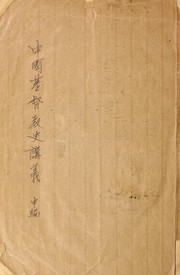 中國基督教史講義 中編